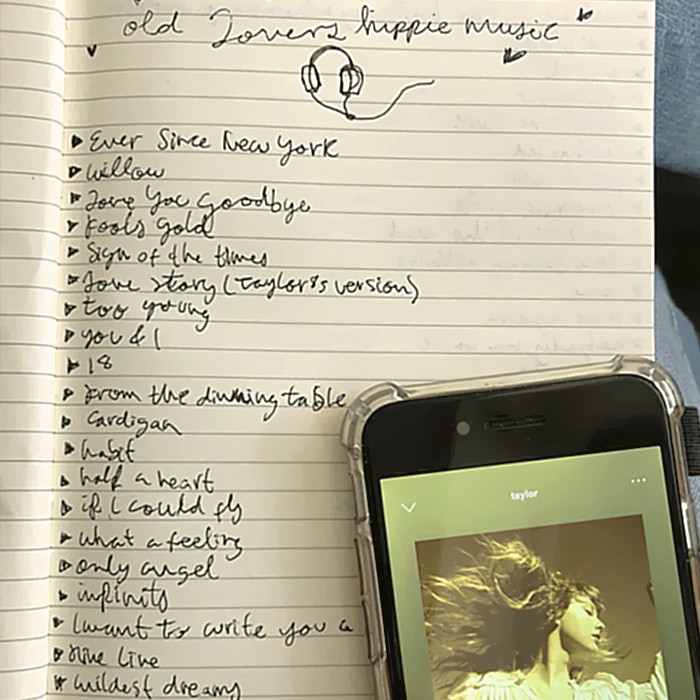 old Lovers hippie music
Ever Since New York
willow
Love You Goodbye
Fools gold
Sign of the times
Love story (Taylor's version)
too young
you & I
18
From the dinning table
Cardigan
habit
half a heart
if I could fly
what a feeling
only angel
infinity
I want to write you a
fine line
wildest dreams
taylor